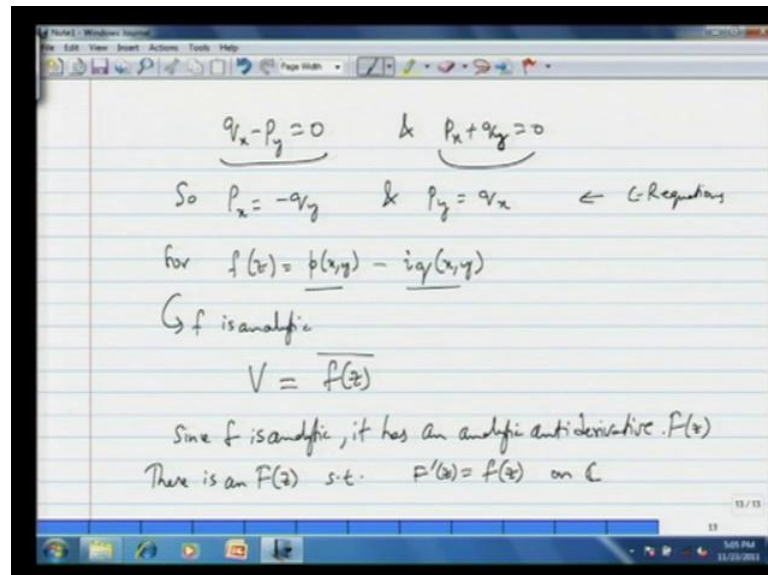 Note1 - Windows Journal
File Edit View Insert Actions Tools Help
Page Width
q_x - p_y = 0 & p_x + q_y = 0
So p_x = -q_y & p_y = q_x ← C-R equations
for f(z) = p(x,y) - iq(x,y)
↳ f is analytic
V = \overline{f(z)}
Sine f is analytic, it has an analytic antiderivative. F(z)
There is an F(z) s.t. F'(z) = f(z) on ℂ
13 / 13
13
5:05 PM
11/23/2011